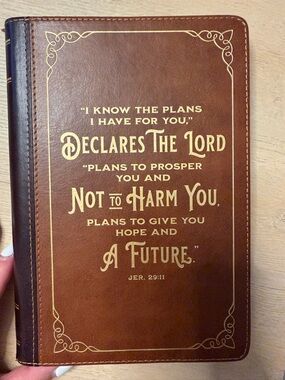 "I KNOW THE PLANS
I HAVE FOR YOU,"
DECLARES THE LORD
"PLANS TO PROSPER
YOU AND
NOT TO HARM YOU,
PLANS TO GIVE YOU
HOPE AND
A FUTURE."
JER. 29:11